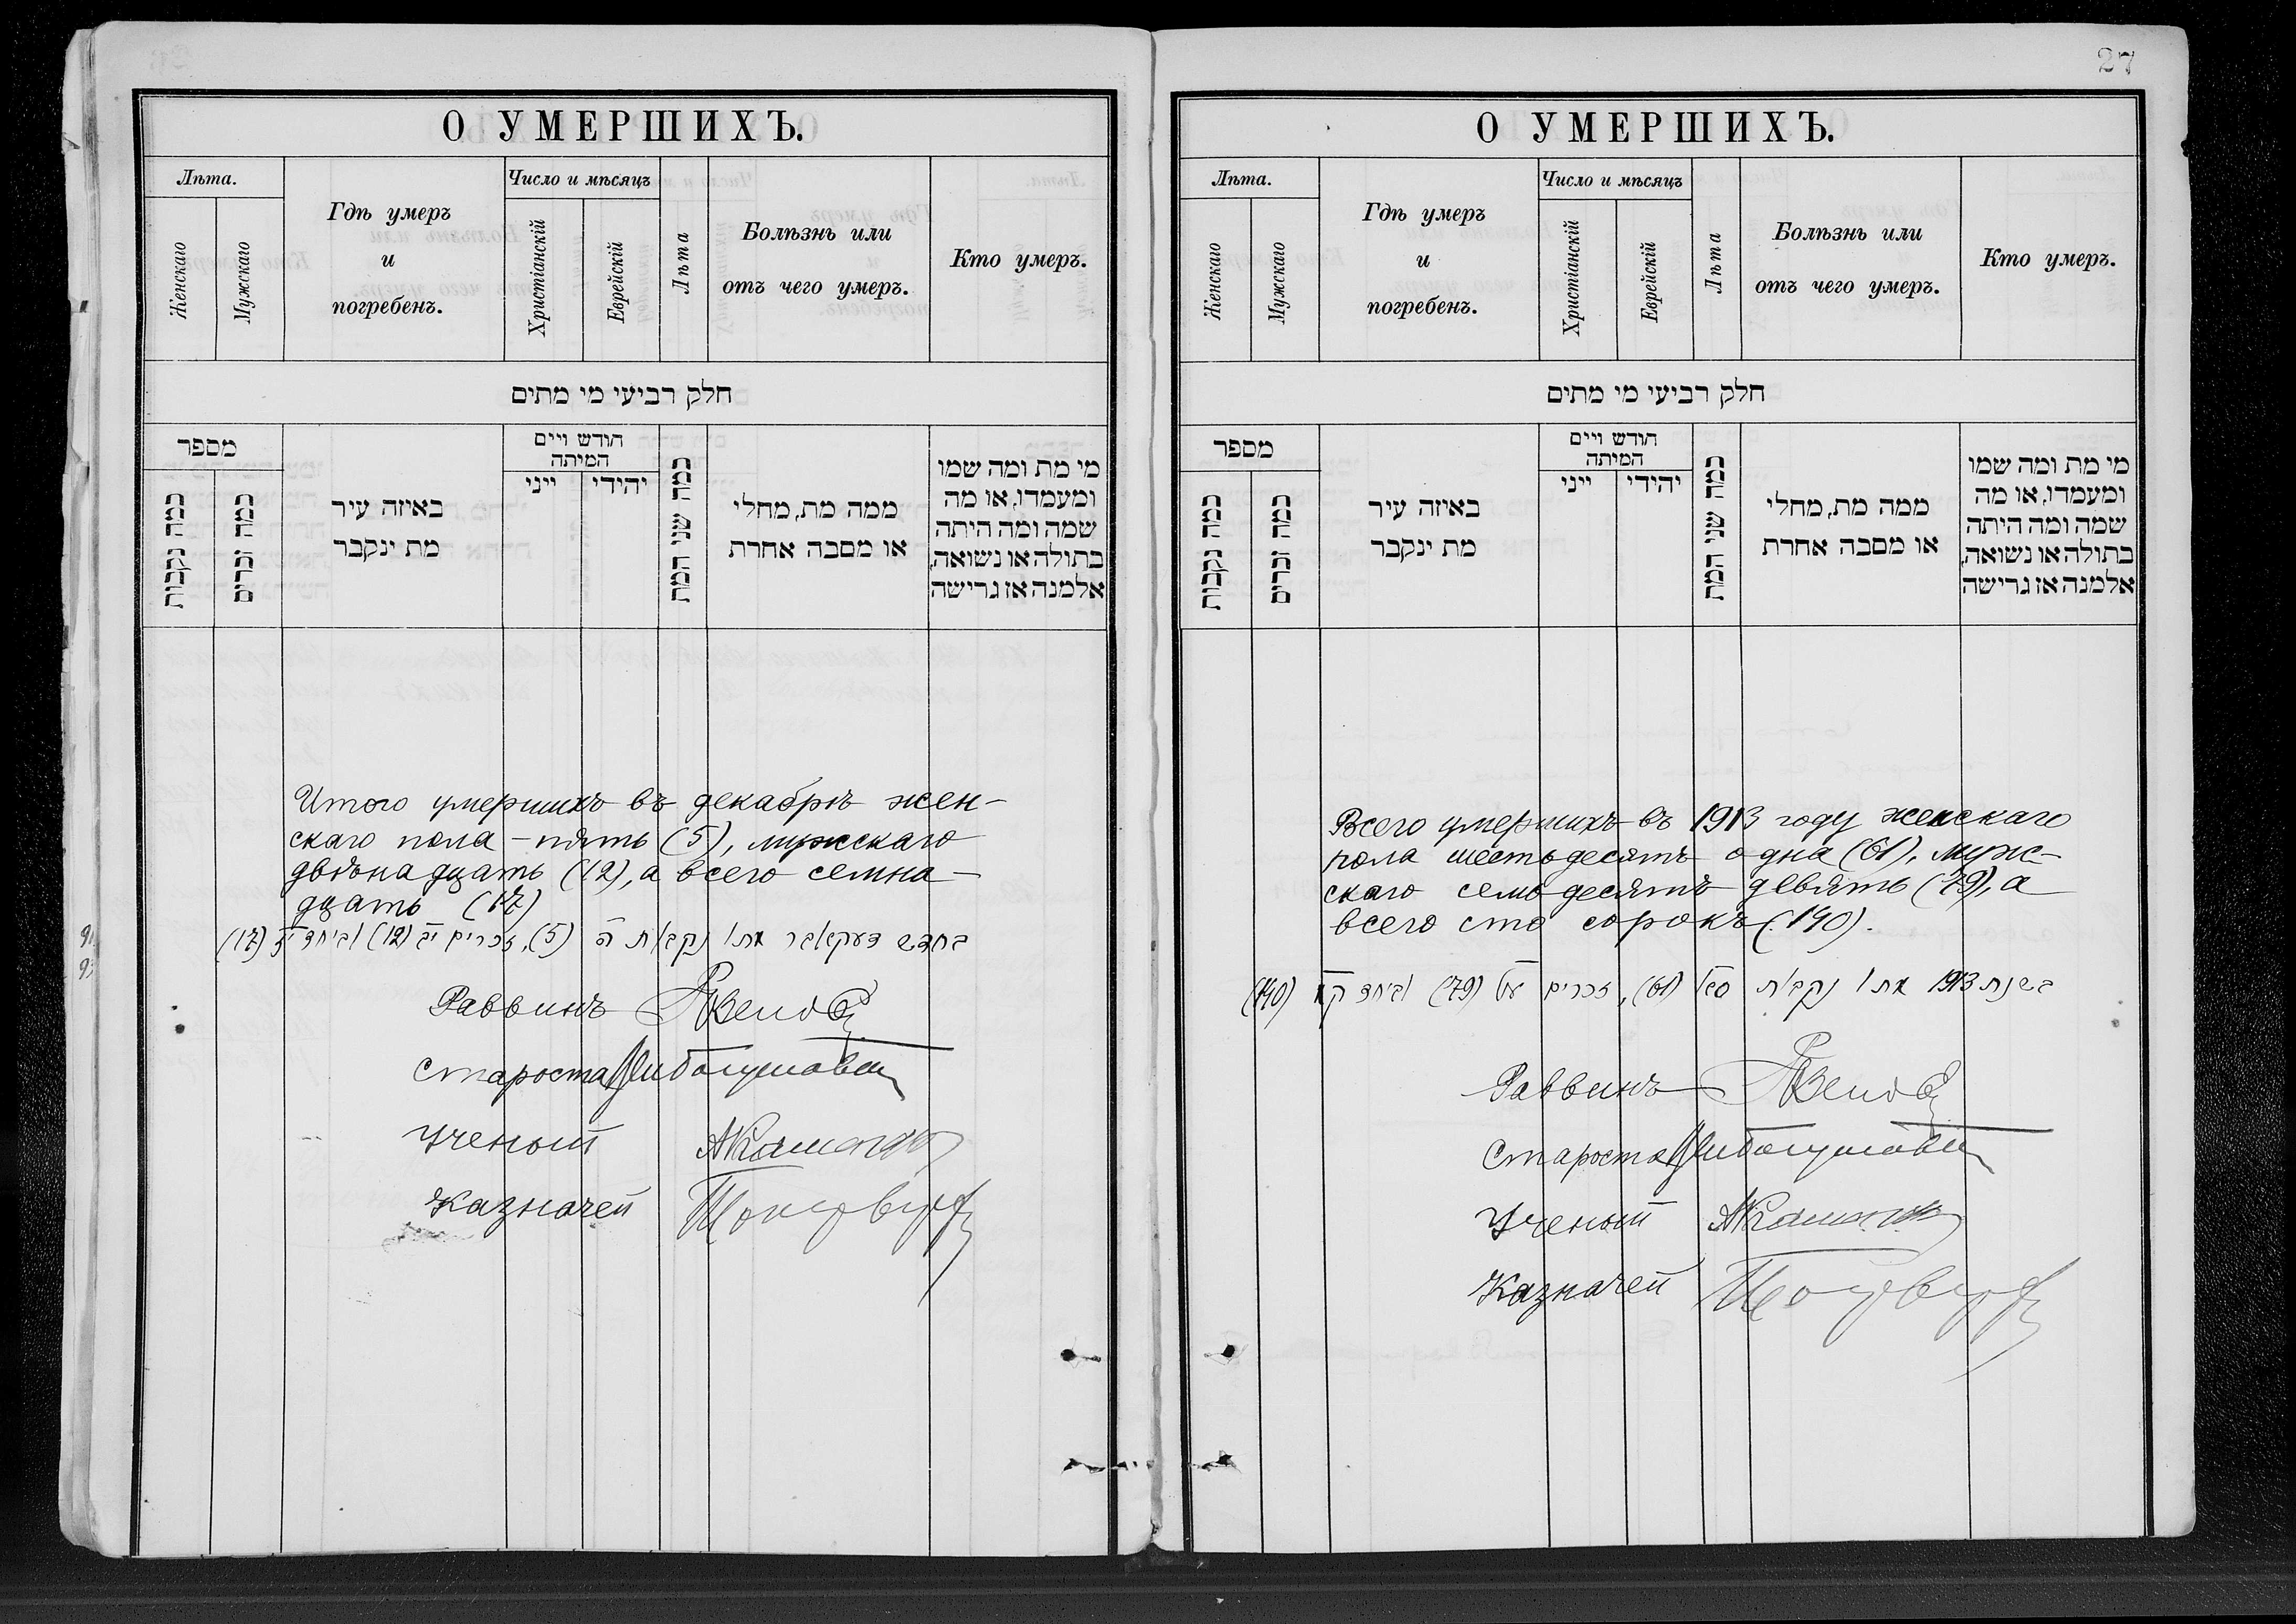 О УМЕРШИХЪ.
Лѣта.
Женскаго
Мужскаго
Гдѣ умеръ
и
погребенъ.
Число и мѣсяцъ
Христіанскій
Еврейскій
Лѣта
Болѣзнь или
отъ чего умеръ.
Кто умеръ.
חלק רביעי מי מתים
מספר
כמה נקבות
כמה זכרים
באיזה עיר
מת ינקבר
חודש ויים
המיתה
ייני
יהידי
כמה שני המת
ממה מת, מחלי
או מסבה אחרת
מי מת ומה שמו
ומעמדו, או מה
שמה ומה היתה
בתולה או נשואה,
אלמנה אז גרישה
Итого умершихъ въ декабрѣ жен-
скаго пола - пять (5), мужскаго
двѣнадцать (12), а всего семна-
дцать (17)
בחדש דעקאבר מתו נקבות ה (5), זכרים יב (12) וביחד יז (17)
Раввинъ
Староста
Ученый
Казначей
27
О УМЕРШИХЪ.
Лѣта.
Женскаго
Мужскаго
Гдѣ умеръ
и
погребенъ.
Число и мѣсяцъ
Христіанскій
Еврейскій
Лѣта
Болѣзнь или
отъ чего умеръ.
Кто умеръ.
חלק רביעי מי מתים
מספר
כמה נקבות
כמה זכרים
באיזה עיר
מת ינקבר
חודש ויים
המיתה
ייני
יהידי
כמה שני המת
ממה מת, מחלי
או מסבה אחרת
מי מת ומה שמו
ומעמדו, או מה
שמה ומה היתה
בתולה או נשואה,
אלמנה אז גרישה
Всего умершихъ въ 1913 году женскаго
пола шестьдесятъ одна (61), муж-
скаго семьдесятъ девять (79), а
всего сто сорокъ (140).
בשנת 1913 מתו נקבות סא (61), זכרים עט (79) וביחד קמ (140)
Раввинъ
Староста
Ученый
Казначей